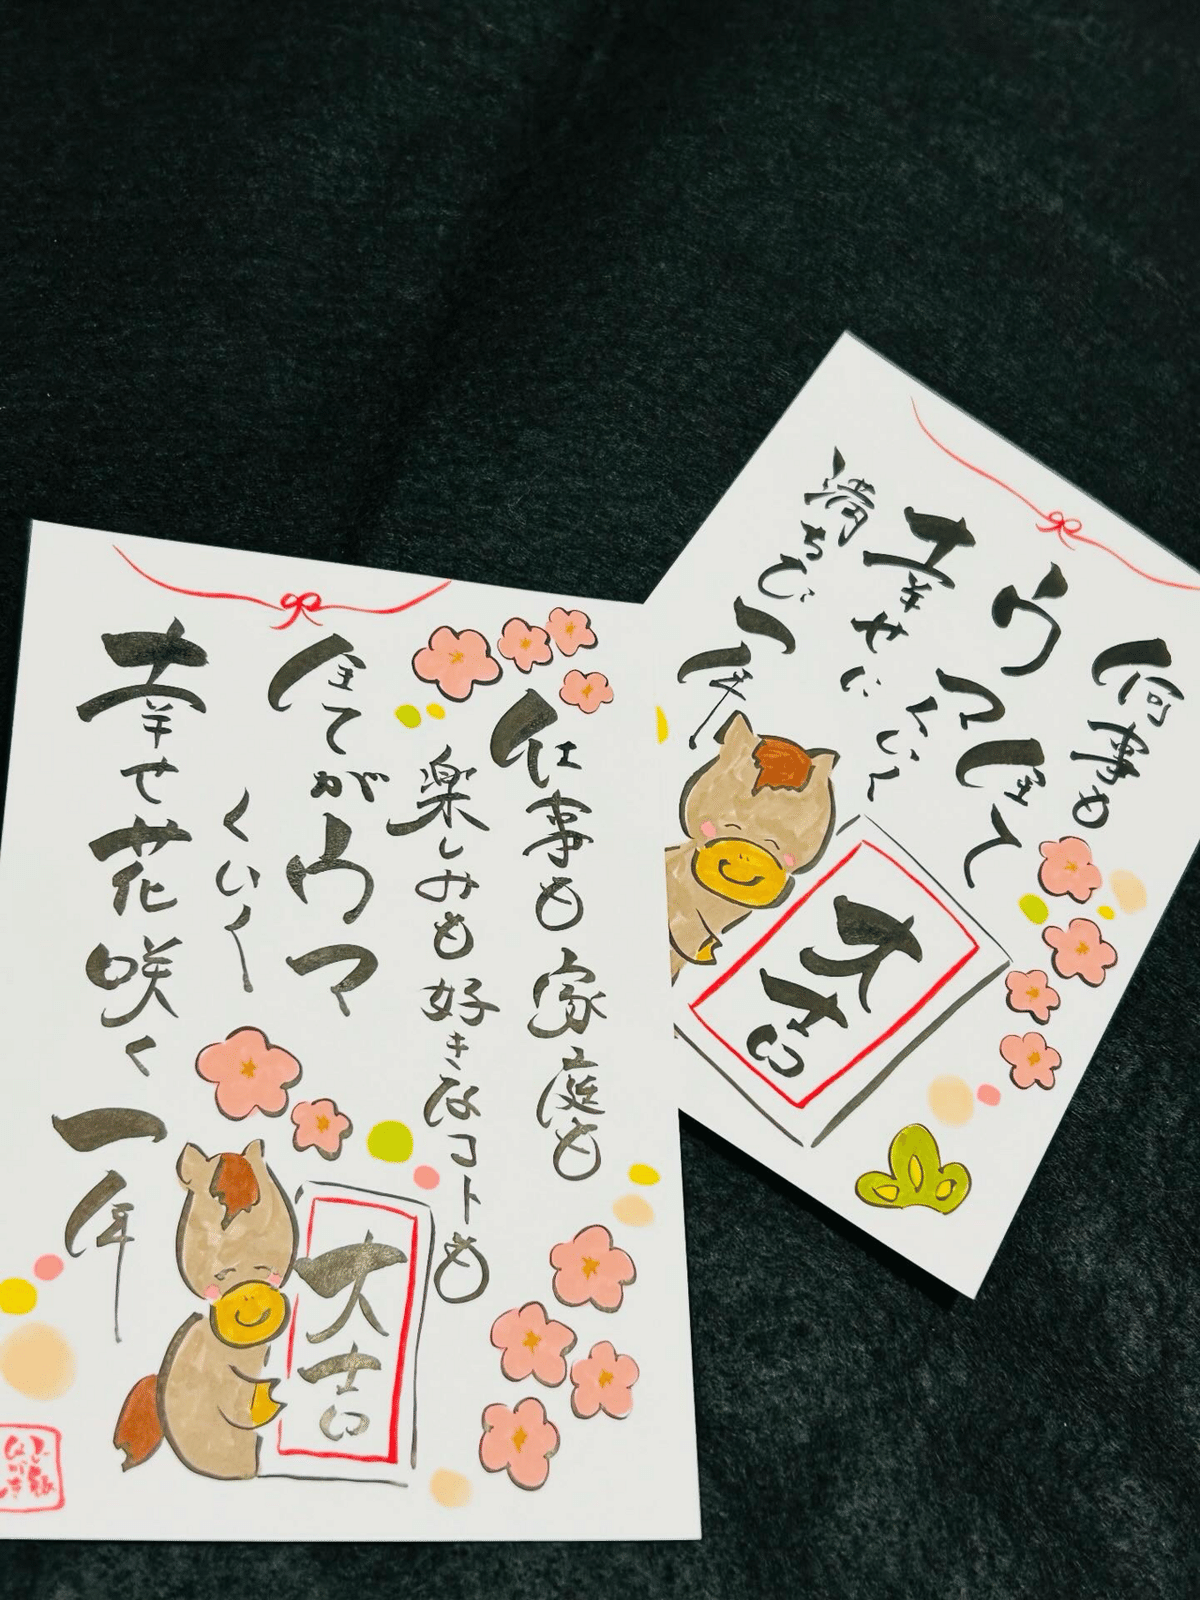 仕事も家庭も
楽しみも好きなコトも
全てがウマ
くいく
幸せ花咲く
一年
大吉
何事も
ウマ全て
くいく
幸せに
満ちび
一年
大吉